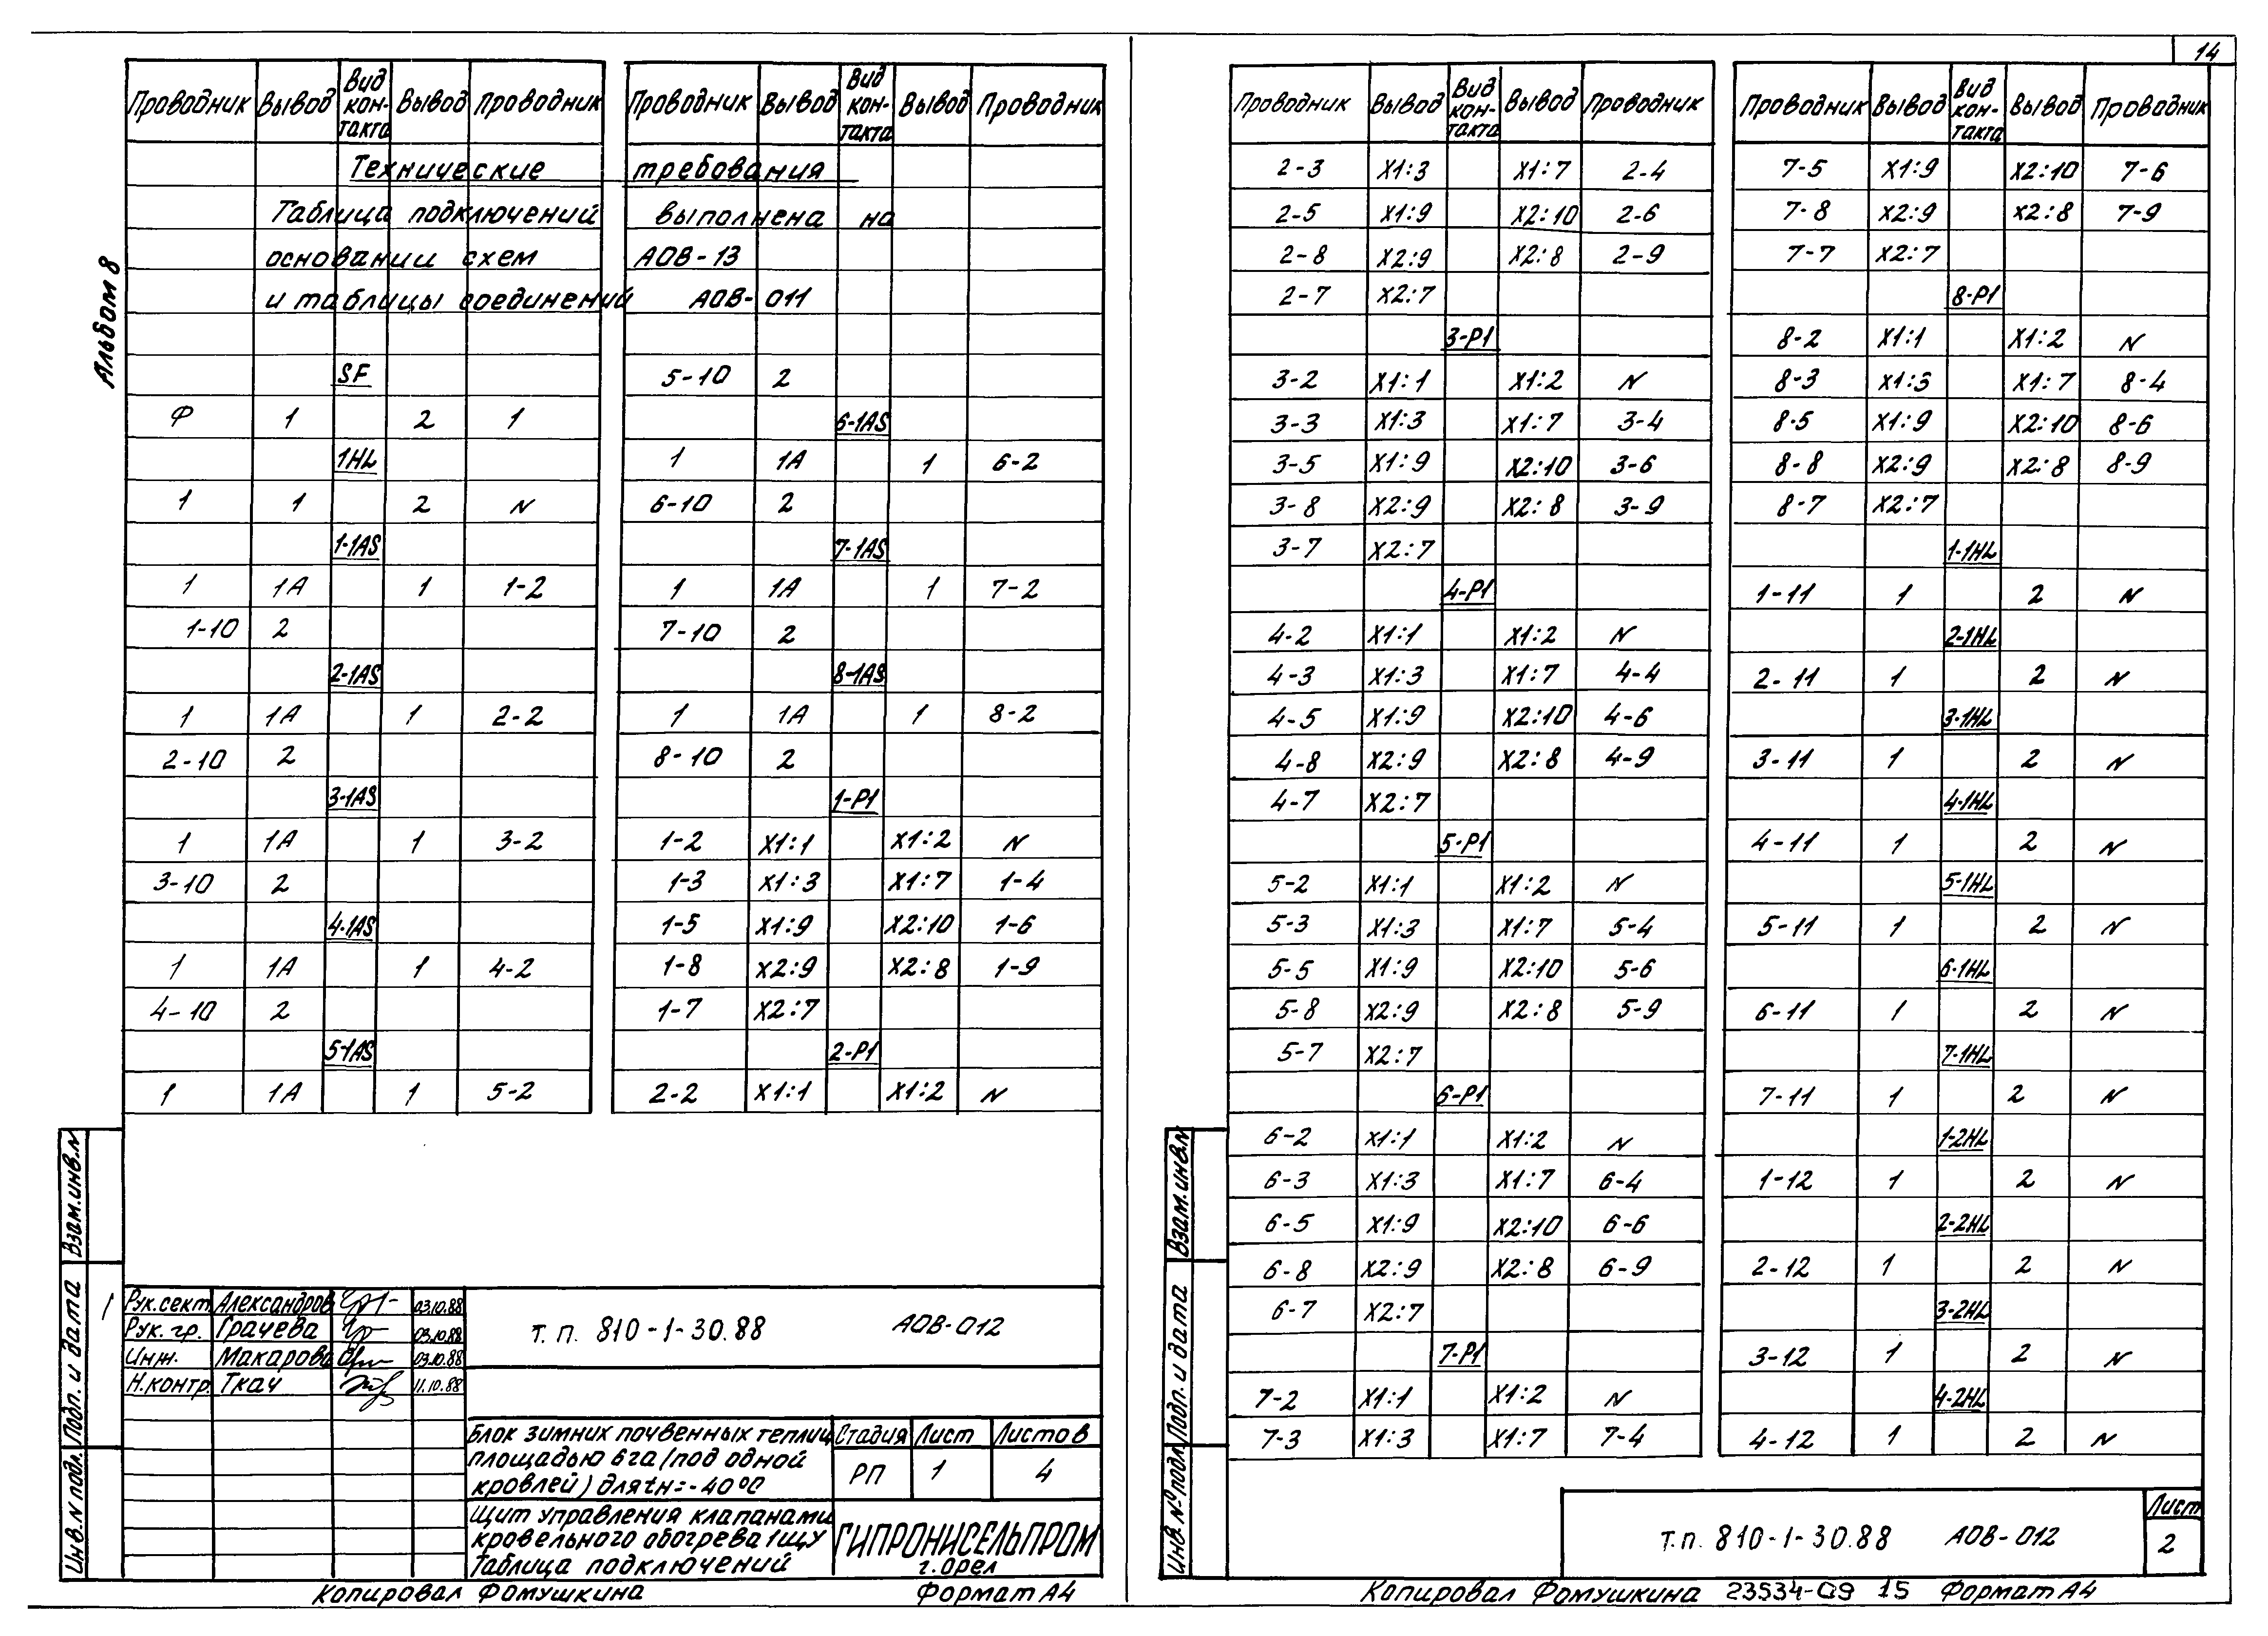 14
Альбом 8
Проводник Вывод Вид контакта Вывод Проводник
Технические требования
Таблица подключений выполнена на
основании схем АОВ-13
и таблицы соединений АОВ-011
SF
Ф 1 2 1
1HL
1 1 2 N
1-1AS
1 1A 1 1-2
1-10 2
2-1AS
1 1A 1 2-2
2-10 2
3-1AS
1 1A 1 3-2
3-10 2
4-1AS
1 1A 1 4-2
4-10 2
5-1AS
1 1A 1 5-2
Проводник Вывод Вид контакта Вывод Проводник
5-10 2
6-1AS
1 1A 1 6-2
6-10 2
7-1AS
1 1A 1 7-2
7-10 2
8-1AS
1 1A 1 8-2
8-10 2
1-P1
1-2 X1:1 X1:2 N
1-3 X1:3 X1:7 1-4
1-5 X1:9 X2:10 1-6
1-8 X2:9 X2:8 1-9
1-7 X2:7
2-P1
2-2 X1:1 X1:2 N
Взам.инв.N
Подп. и дата
Инв.N подл.
Рук.сект. Александров 03.10.88
Рук. гр. Грачева 03.10.88
Инж. Макарова 03.10.88
Н.контр. Ткач 11.10.88
т.п. 810-1-30.88 АОВ-012
Блок зимних почвенных теплиц
площадью 6га (под одной
кровлей) для tн=-40°С
Стадия Лист Листов
РП 1 4
Щит управления клапанами
кровельного обогрева 1ЩУ
Таблица подключений
ГИПРОНИСЕЛЬПРОМ
г.Орел
Копировал Фомушкина Формат А4
Проводник Вывод Вид контакта Вывод Проводник
2-3 X1:3 X1:7 2-4
2-5 X1:9 X2:10 2-6
2-8 X2:9 X2:8 2-9
2-7 X2:7
3-P1
3-2 X1:1 X1:2 N
3-3 X1:3 X1:7 3-4
3-5 X1:9 X2:10 3-6
3-8 X2:9 X2:8 3-9
3-7 X2:7
4-P1
4-2 X1:1 X1:2 N
4-3 X1:3 X1:7 4-4
4-5 X1:9 X2:10 4-6
4-8 X2:9 X2:8 4-9
4-7 X2:7
5-P1
5-2 X1:1 X1:2 N
5-3 X1:3 X1:7 5-4
5-5 X1:9 X2:10 5-6
5-8 X2:9 X2:8 5-9
5-7 X2:7
6-P1
6-2 X1:1 X1:2 N
6-3 X1:3 X1:7 6-4
6-5 X1:9 X2:10 6-6
6-8 X2:9 X2:8 6-9
6-7 X2:7
7-P1
7-2 X1:1 X1:2 N
7-3 X1:3 X1:7 7-4
Проводник Вывод Вид контакта Вывод Проводник
7-5 X1:9 X2:10 7-6
7-8 X2:9 X2:8 7-9
7-7 X2:7
8-P1
8-2 X1:1 X1:2 N
8-3 X1:3 X1:7 8-4
8-5 X1:9 X2:10 8-6
8-8 X2:9 X2:8 8-9
8-7 X2:7
1-1HL
1-11 1 2 N
2-1HL
2-11 1 2 N
3-1HL
3-11 1 2 N
4-1HL
4-11 1 2 N
5-1HL
5-11 1 2 N
6-1HL
6-11 1 2 N
7-1HL
7-11 1 2 N
1-2HL
1-12 1 2 N
2-2HL
2-12 1 2 N
3-2HL
3-12 1 2 N
4-2HL
4-12 1 2 N
Взам.инв.N
Подп. и дата
Инв. Nº подл.
т.п. 810-1-30.88 АОВ-012
Лист
2
Копировал Фомушкина 23534-09 15 Формат А4